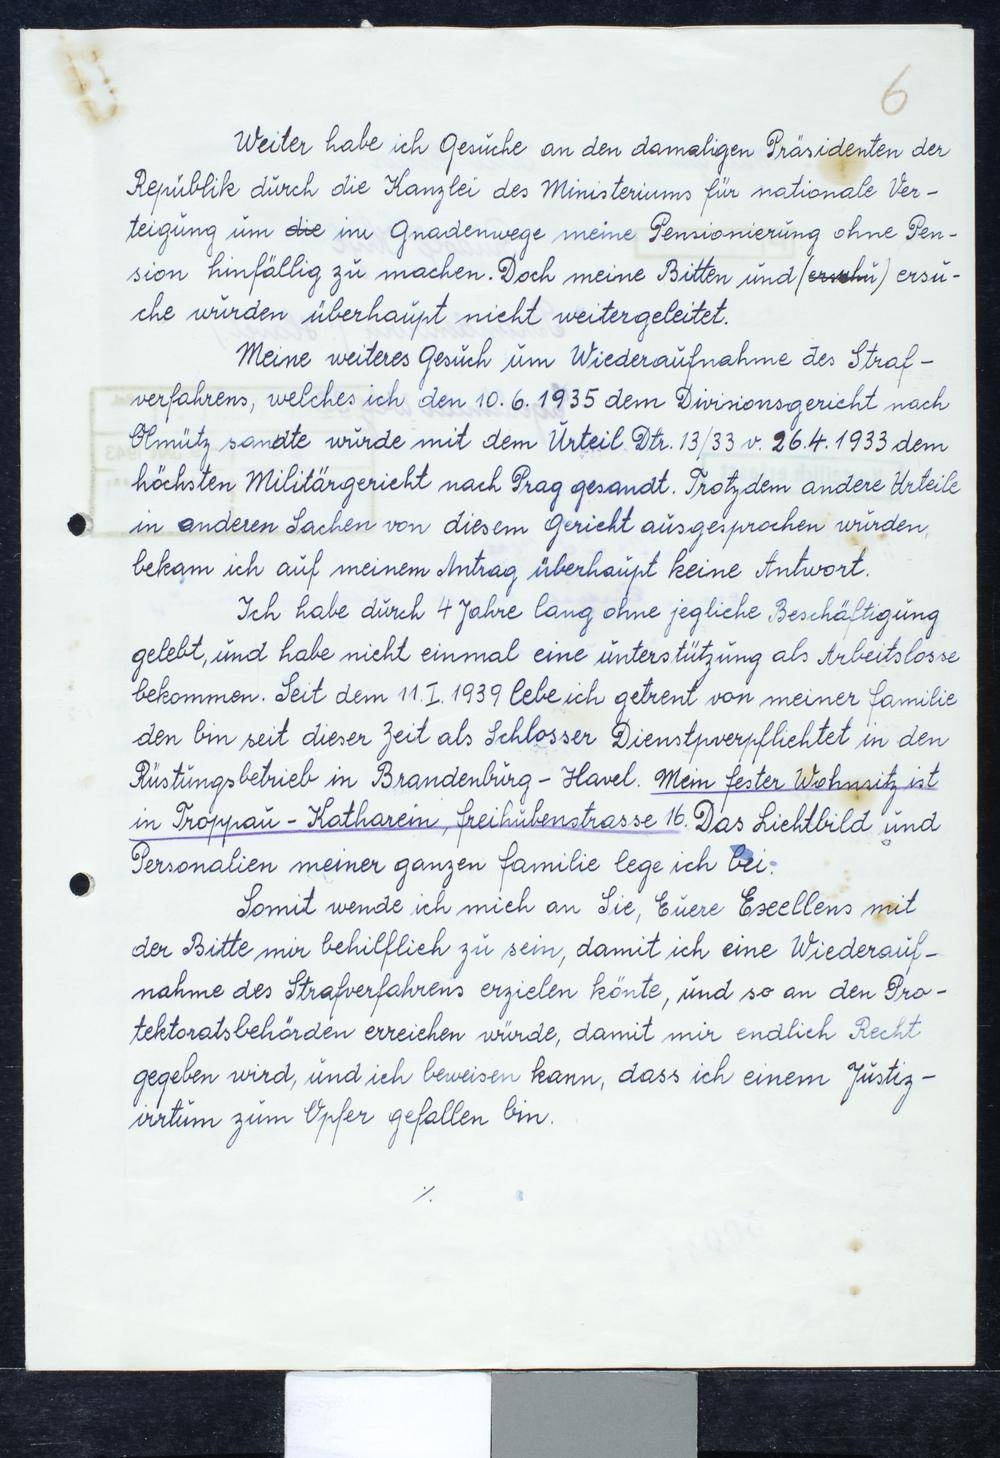 6
Weiter habe ich Gesuche an den damaligen Präsidenten der
Republik durch die Kanzlei des Ministeriums für nationale Ver-
teigung um die im Gnadenwege meine Pensionierung ohne Pen-
sion hinfällig zu machen. Doch meine Bitten und (ersuhu) ersu-
che wurden überhaupt nicht weitergeleitet.
Meine weiteres Gesuch um Wiederaufnahme des Straf-
verfahrens, welches ich den 10. 6. 1935 dem Divisionsgericht nach
Olmütz sandte wurde mit dem Urteil Dtr. 13/33 v. 26.4. 1933 dem
höchsten Militärgericht nach Prag gesandt. Trotzdem andere Urteile
in anderen Sachen von diesem Gericht ausgesprochen wurden,
bekam ich auf meinem Antrag überhaupt keine Antwort.
Ich habe durch 4 Jahre lang ohne jegliche Beschäftigung
gelebt, und habe nicht einmal eine unterstützung als Arbeitslosse
bekommen. Seit dem 11. I. 1939 lebe ich getrent von meiner familie
den bin seit dieser Zeit als Schlosser Dienstpverpflichtet in den
Rüstungsbetrieb in Brandenburg - Havel. Mein fester Wohnsitz ist
in Troppau - Katharein, freihubenstrasse 16. Das Lichtbild und
Personalien meiner ganzen familie lege ich bei.
Somit wende ich mich an Sie, Euere Exellens mit
der Bitte mir behilflich zu sein, damit ich eine Wiederauf-
nahme des Strafverfahrens erzielen könte, und so an den Pro-
tektoratsbehörden erreichen würde, damit mir endlich Recht
gegeben wird, und ich beweisen kann, dass ich einem Justiz-
irrtum zum Opfer gefallen bin.
./.